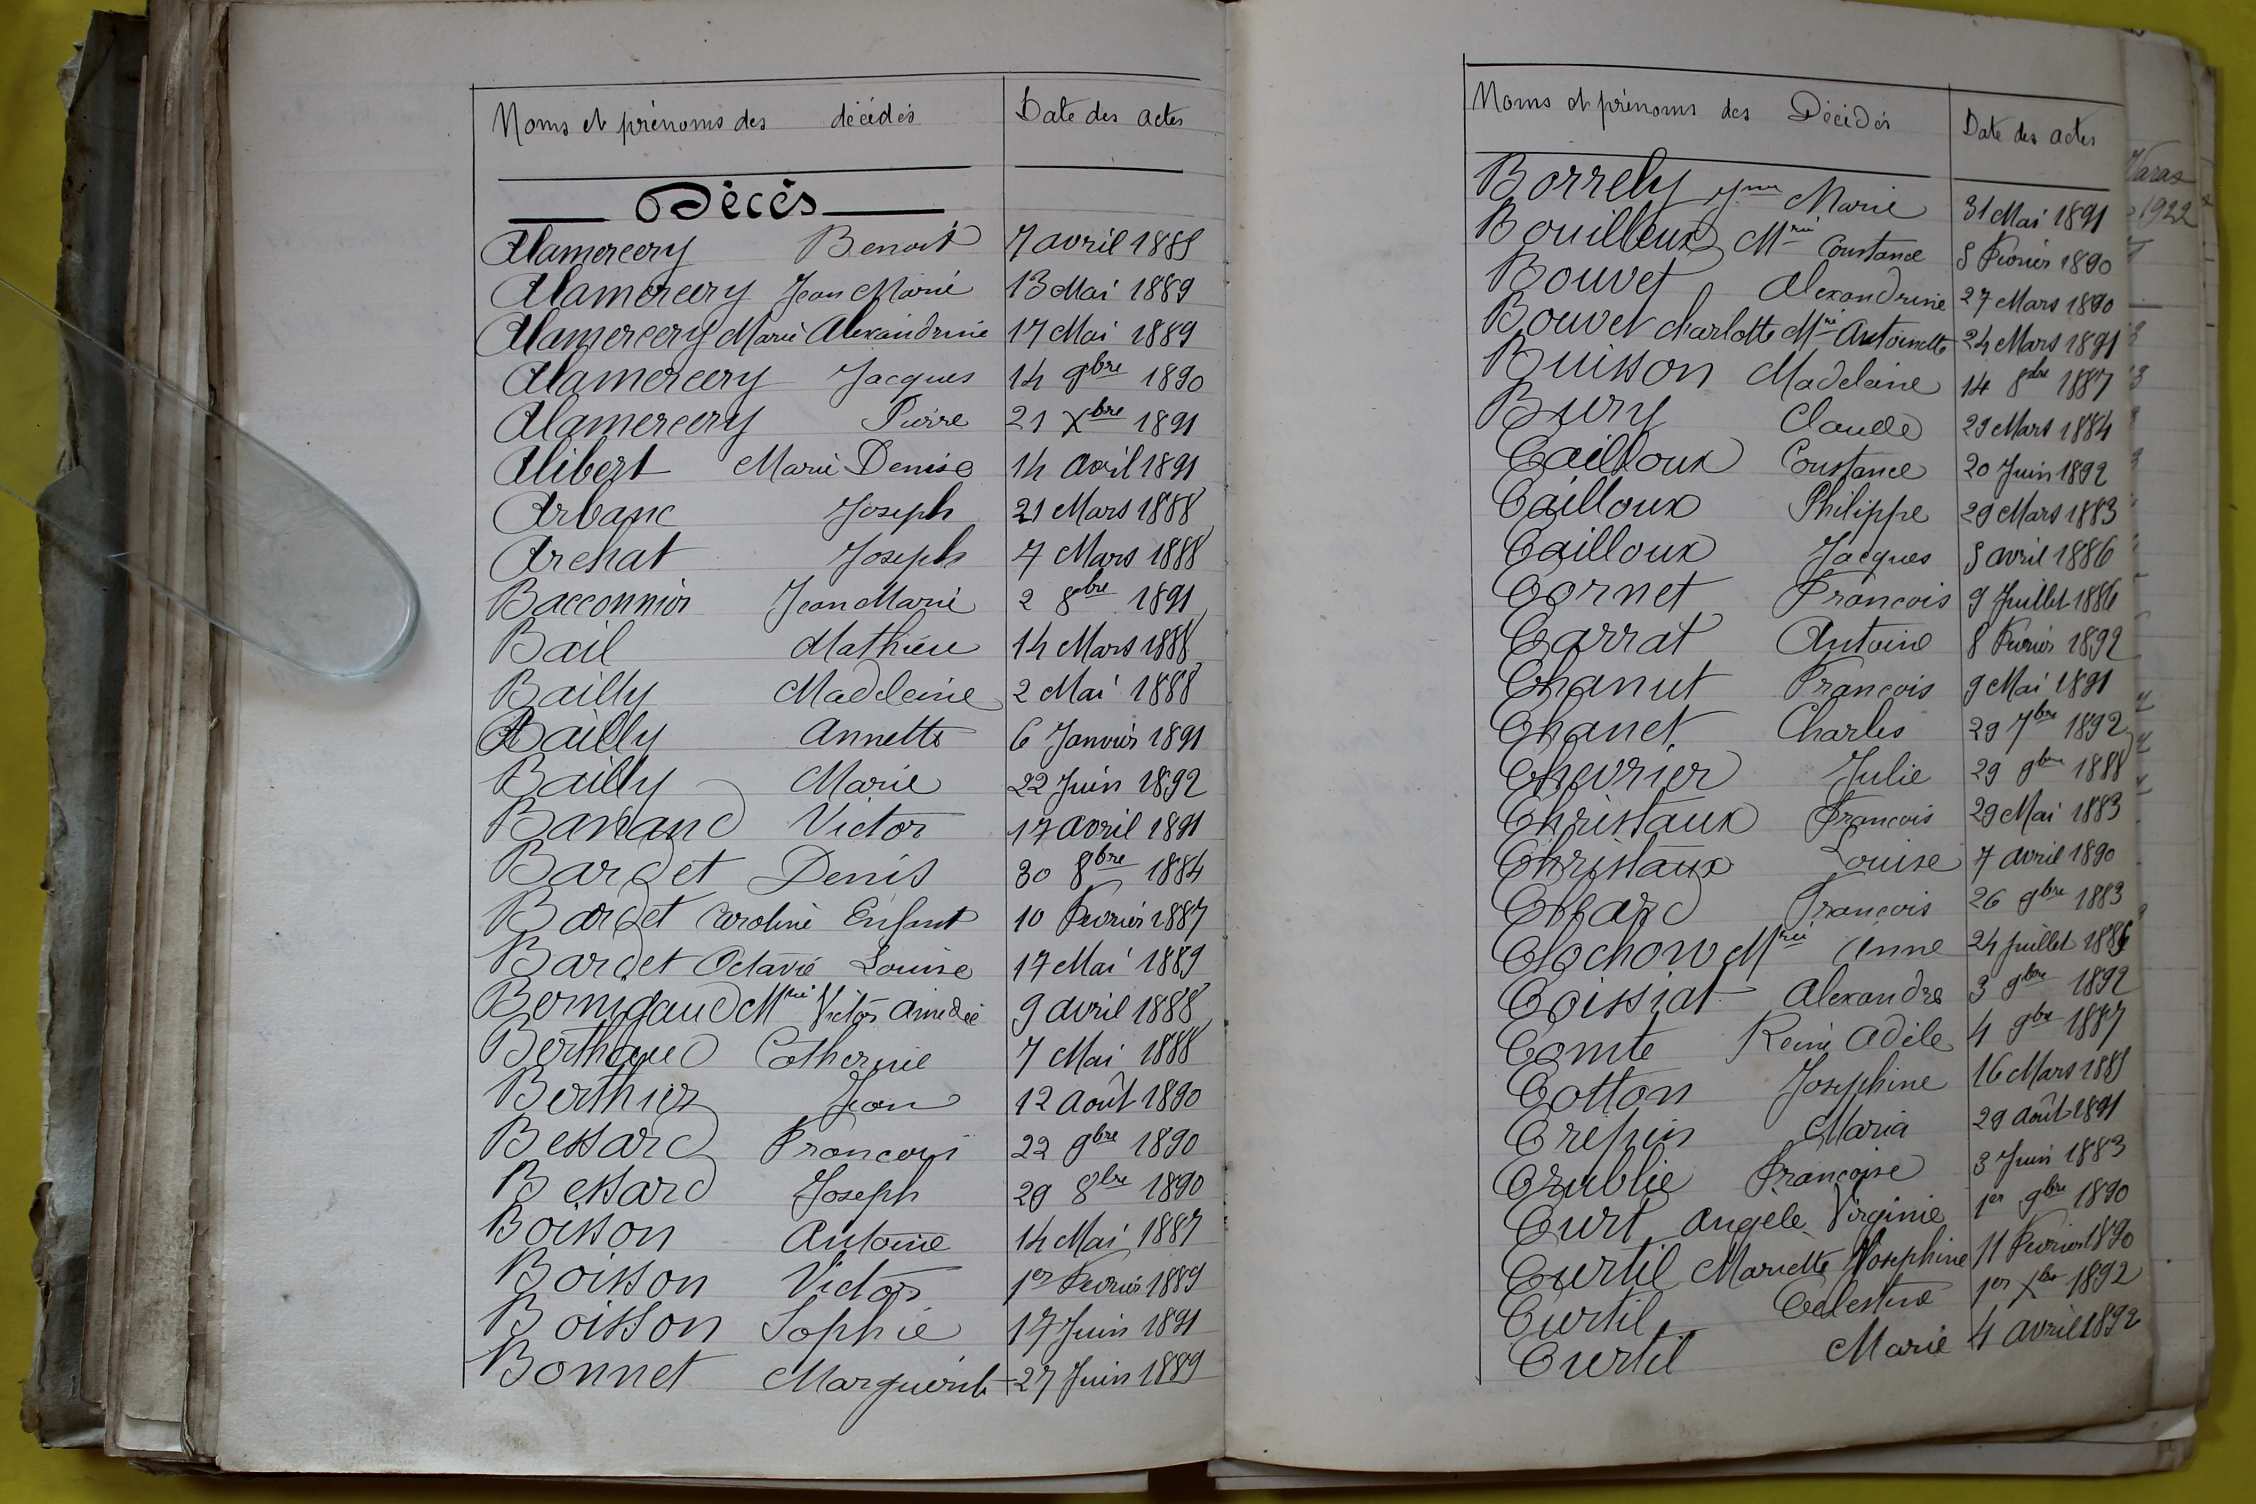 Noms et prénoms des décédés Date des actes
Décès
Alamercery Benoit 7 avril 1885
Alamercery Jean Marie 13 Mai 1889
Alamercery Marie Alexandrine 17 Mai 1889
Alamercery Jacques 14 9bre 1890
Alamercery Pierre 21 Xbre 1891
Alibert Marie Denise 14 avril 1891
Arbanc Joseph 21 Mars 1888
Archat Joseph 7 Mars 1888
Bacconnier Jean Marie 2 8bre 1891
Bail Mathieu 14 Mars 1888
Bailly Madeleine 2 Mai 1888
Bailly Annette 6 Janvier 1891
Bailly Marie 22 Juin 1892
Barrand Victor 17 avril 1891
Bardet Denis 30 8bre 1884
Bardet Caroline Enfant 10 Fevrier 1887
Bardet Octavie Louise 17 Mai 1889
Bernigaud Mrie Victor Amedée 9 avril 1888
Berthaud Catherine 7 Mai 1888
Berthier Jean 12 Août 1890
Bessard Francois 22 9bre 1890
Bessard Joseph 29 8bre 1890
Boisson Antoine 14 Mai 1887
Boisson Victor 1er Fevrier 1889
Boisson Sophie 17 Juin 1891
Bonnet Marguerite 27 Juin 1889
Noms et prénoms des Décédés Date des actes
Borrely Marie 31 Mai 1891
Bouilleux Mrie Constance 5 Fevrier 1890
Bouvet Alexandrine 27 Mars 1890
Bouvet Charlotte Mrie Antoinette 24 Mars 1891
Buisson Madeleine 14 8bre 1887
Bury Claude 29 Mars 1884
Cailloux Constance 20 Juin 1892
Cailloux Philippe 29 Mars 1883
Cailloux Jacques 5 avril 1886
Cornet Francois 9 Juillet 1886
Carrat Antoine 8 Fevrier 1892
Chanut Francois 9 Mai 1891
Chanet Charles 29 7bre 1892
Chevrier Julie 29 9bre 1888
Christaux Francois 29 Mai 1883
Christaux Louise 7 avril 1890
Francois 26 9bre 1883
Clochon Mrie Anne 24 Juillet 1886
Coissiat Alexandre 3 9bre 1892
Comte Reine Adèle 4 9bre 1887
Cotton Josephine 16 Mars 1885
Crepin Maria 29 Août 1891
Crublie Françoise 3 Juin 1883
Curt Angele Virginie 1er 9bre 1890
Curtil Mariette Josephine 11 Fevrier 1890
Curtil Celestine 1er Xbre 1892
Curtil Marie 4 avril 1892
Varas
1922